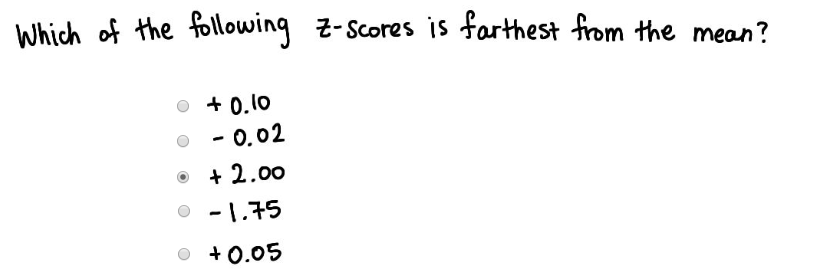 Which of the following z-scores is farthest from the mean?
+ 0.10
- 0.02
+ 2.00
- 1.75
+ 0.05